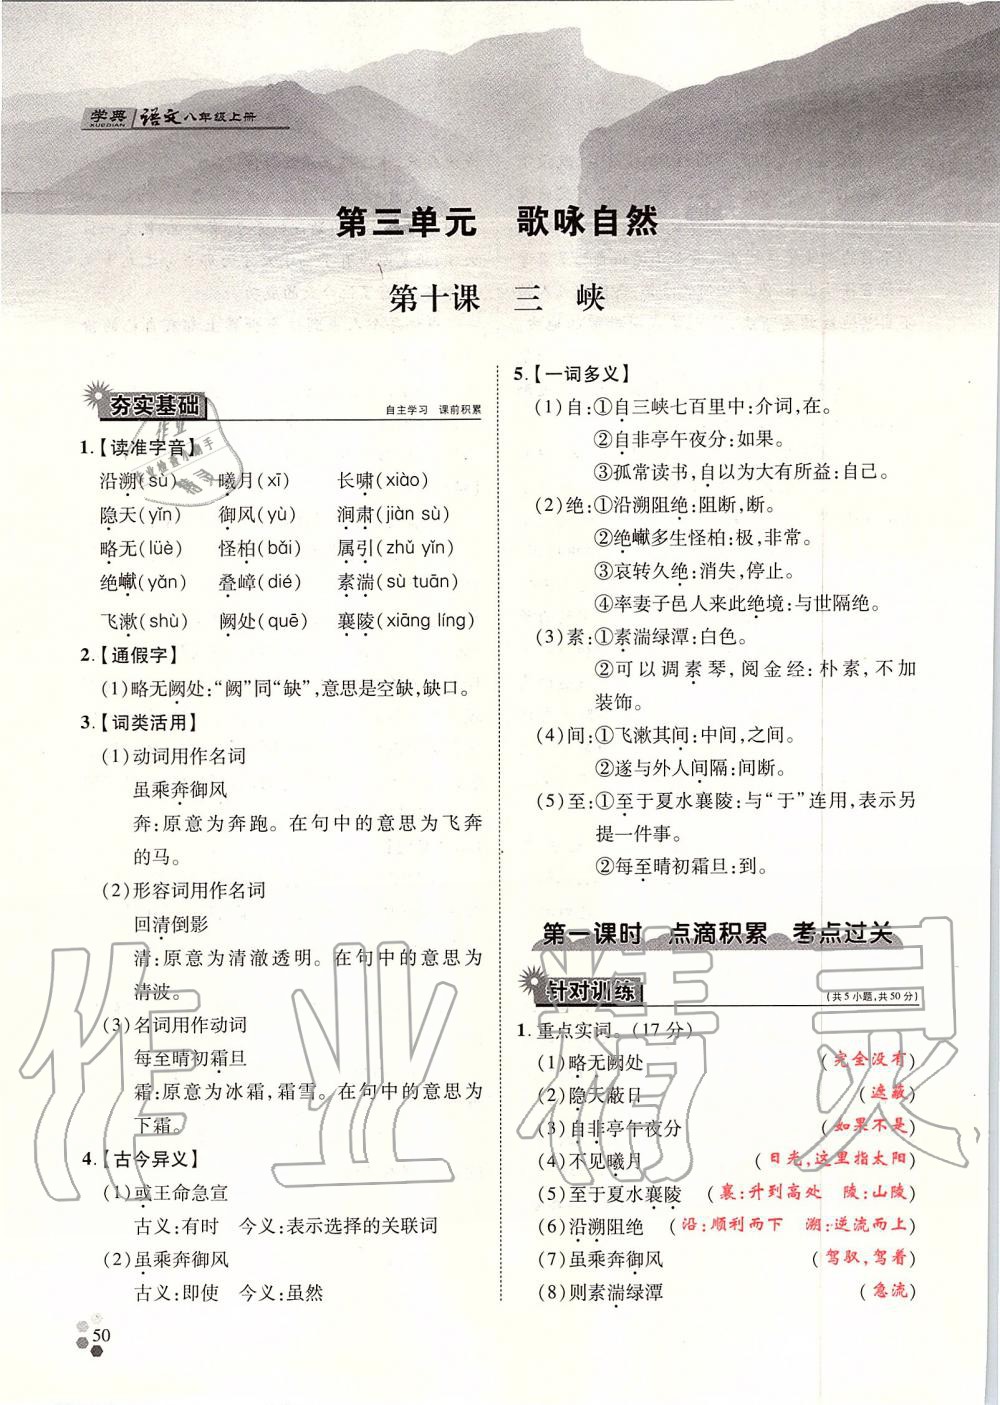 学典
XUEDIAN
语文八年级上册
第三单元　歌咏自然
第十课　三　峡
夯实基础
自主学习　课前积累
1.【读准字音】
沿溯(sù)　曦月(xī)　长啸(xiào)
隐天(yǐn)　御风(yù)　涧肃(jiàn sù)
略无(lüè)　怪柏(bǎi)　属引(zhǔ yǐn)
绝巘(yǎn)　叠嶂(dié)　素湍(sù tuān)
飞漱(shù)　阙处(quē)　襄陵(xiāng líng)
2.【通假字】
(1)略无阙处:“阙”同“缺”,意思是空缺,缺口。
3.【词类活用】
(1)动词用作名词
虽乘奔御风
奔:原意为奔跑。在句中的意思为飞奔
的马。
(2)形容词用作名词
回清倒影
清:原意为清澈透明。在句中的意思为
清波。
(3)名词用作动词
每至晴初霜旦
霜:原意为冰霜,霜雪。在句中的意思为
下霜。
4.【古今异义】
(1)或王命急宣
古义:有时　今义:表示选择的关联词
(2)虽乘奔御风
古义:即使　今义:虽然
5.【一词多义】
(1)自:①自三峡七百里中:介词,在。
②自非亭午夜分:如果。
③孤常读书,自以为大有所益:自己。
(2)绝:①沿溯阻绝:阻断,断。
②绝巘多生怪柏:极,非常。
③哀转久绝:消失,停止。
④率妻子邑人来此绝境:与世隔绝。
(3)素:①素湍绿潭:白色。
②可以调素琴,阅金经:朴素,不加
装饰。
(4)间:①飞漱其间:中间,之间。
②遂与外人间隔:间断。
(5)至:①至于夏水襄陵:与“于”连用,表示另
提一件事。
②每至晴初霜旦:到。
第一课时　点滴积累　考点过关
针对训练
(共5小题,共50分)
1.重点实词。(17分)
(1)略无阙处　(完全没有)
(2)隐天蔽日　(遮蔽)
(3)自非亭午夜分　(如果不是)
(4)不见曦月　(日光,这里指太阳)
(5)至于夏水襄陵　(襄:升到高处　陵:山陵)
(6)沿溯阻绝　(沿:顺利而下　溯:逆流而上)
(7)虽乘奔御风　(驾驭,驾着)
(8)则素湍绿潭　(急流)
50
作业精灵